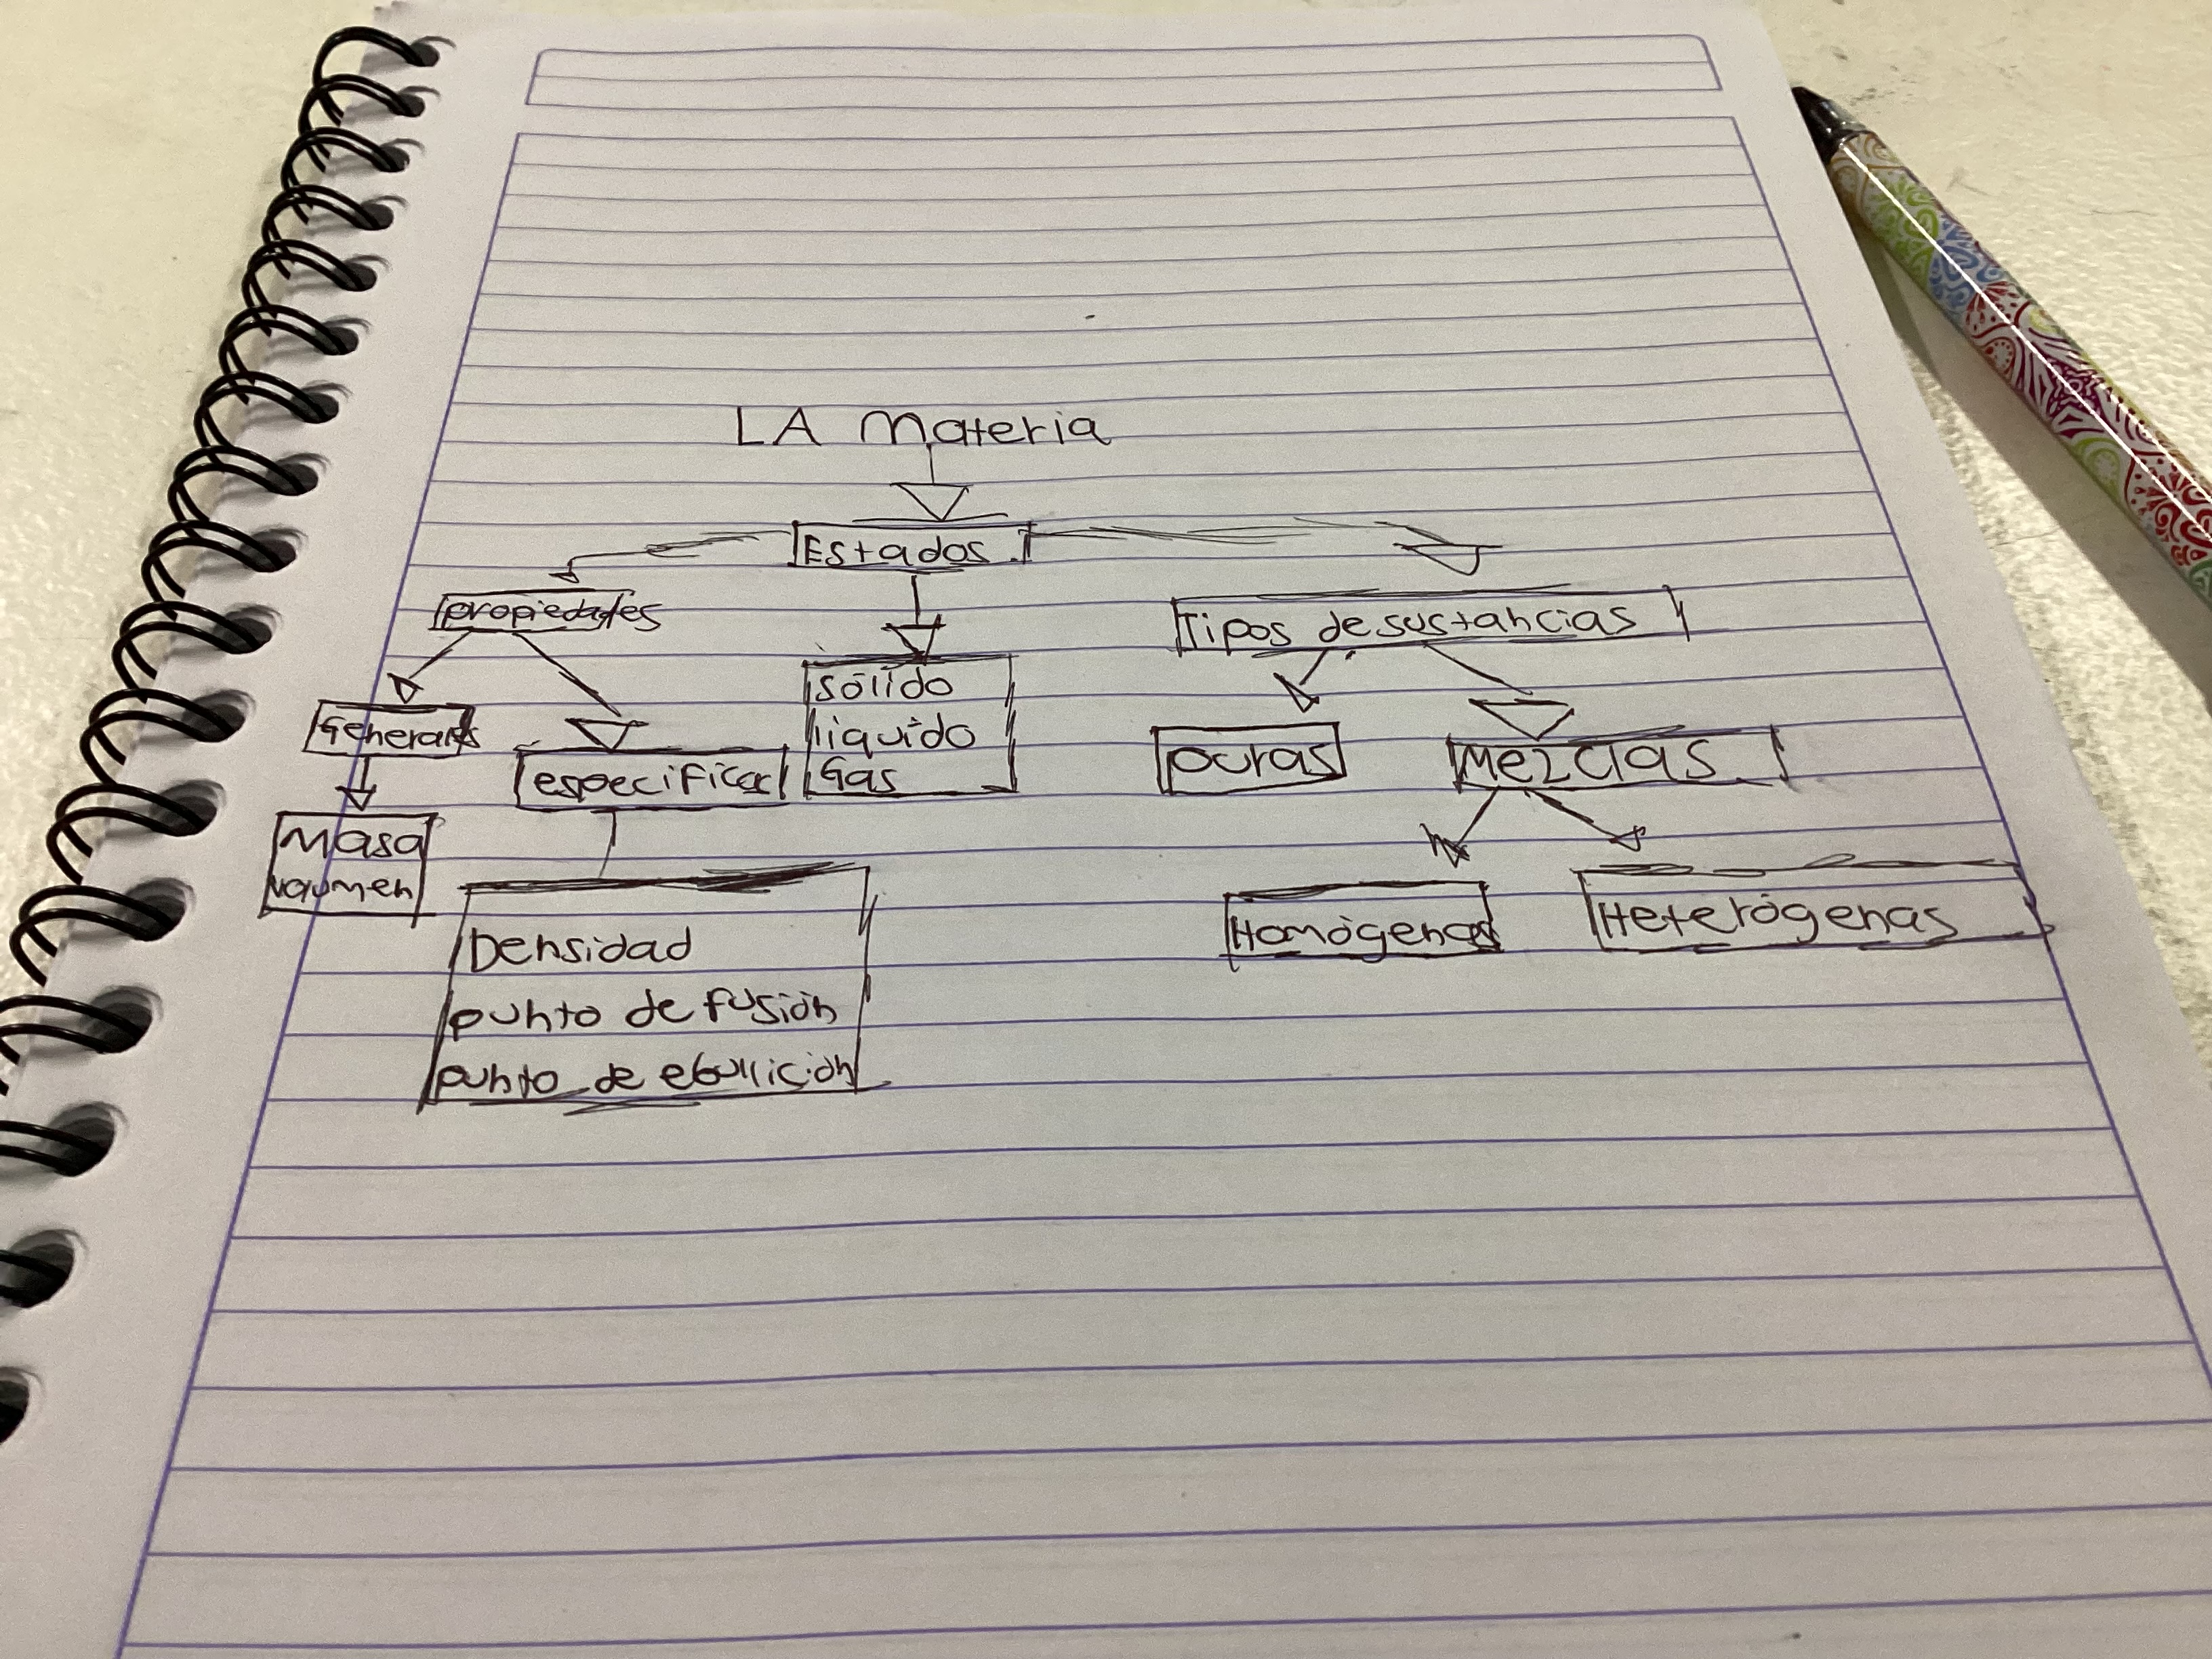 LA Materia
Estados
propiedades
Tipos de sustancias
Generales
especificas
sólido
líquido
Gas
puras
Mezclas
Masa
volumen
Densidad
punto de fusión
punto de ebullición
Homógenas
Heterógenas